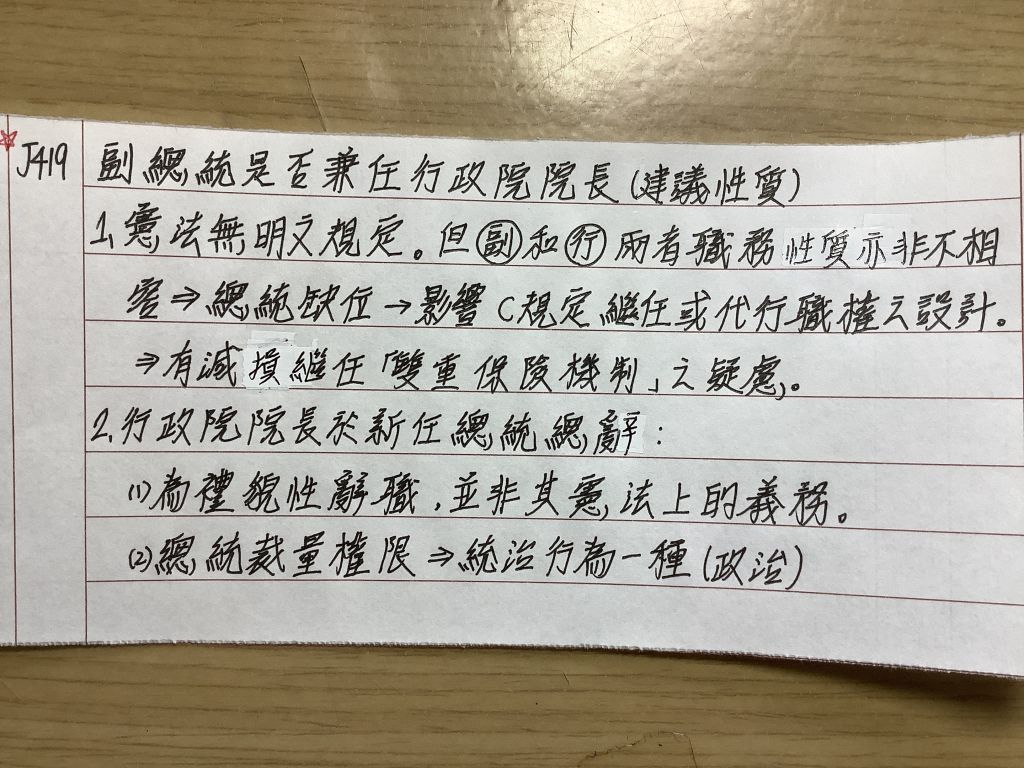 J419 副總統是否兼任行政院院長(建議性質)
1.憲法無明文規定。但副和行兩者職務性質亦非不相
容⇒總統缺位→影響C規定繼任或代行職權之設計。
⇒有減損繼任「雙重保險機制」之疑慮。
2.行政院院長於新任總統總辭:
(1)為禮貌性辭職,並非其憲法上的義務。
(2)總統裁量權限⇒統治行為一種(政治)